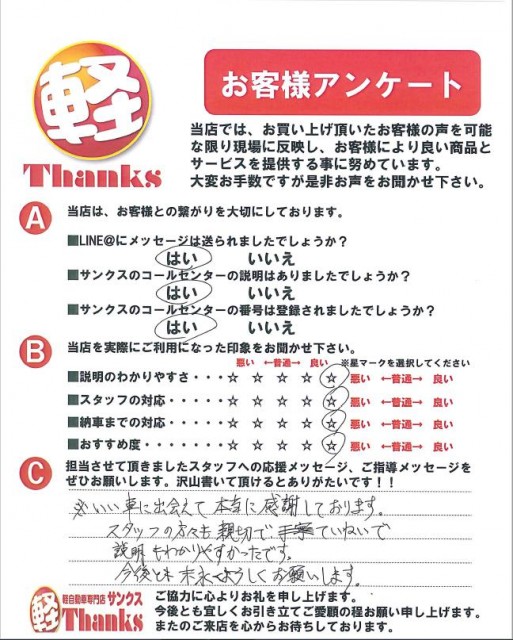 軽
Thanks
お客様アンケート
当店では、お買い上げ頂いたお客様の声を可能
な限り現場に反映し、お客様により良い商品と
サービスを提供する事に努めています。
大変お手数ですが是非お声をお聞かせ下さい。
A 当店は、お客様との繋がりを大切にしております。
■LINE@にメッセージは送られましたでしょうか？
はい いいえ
■サンクスのコールセンターの説明はありましたでしょうか？
はい いいえ
■サンクスのコールセンターの番号は登録されましたでしょうか？
はい いいえ
B 当店を実際にご利用になった印象をお聞かせ下さい。
悪い ←普通→ 良い ※星マークを選択してください
■説明のわかりやすさ・・・・☆ ☆ ☆ ☆ ☆ 悪い ←普通→ 良い
■スタッフの対応・・・・・☆ ☆ ☆ ☆ ☆ 悪い ←普通→ 良い
■納車までの対応・・・・・☆ ☆ ☆ ☆ ☆ 悪い ←普通→ 良い
■おすすめ度・・・・・・・☆ ☆ ☆ ☆ ☆ 悪い ←普通→ 良い
C 担当させて頂きましたスタッフへの応援メッセージ、ご指導メッセージを
ぜひお願いします。沢山書いて頂けるとありがたいです！！
いい車に出会えて本当に感謝しております。
スタッフの方々も親切で ていねいで
説明もわかりやすかったです。
今後とも 末永くよろしくお願いします。
軽 軽自動車専門店 サンクス
Thanks
ご協力に心よりお礼を申し上げます。
今後とも宜しくお引き立てご愛顧の程お願い申し上げます。
またのご来店を心からお待ちしております。